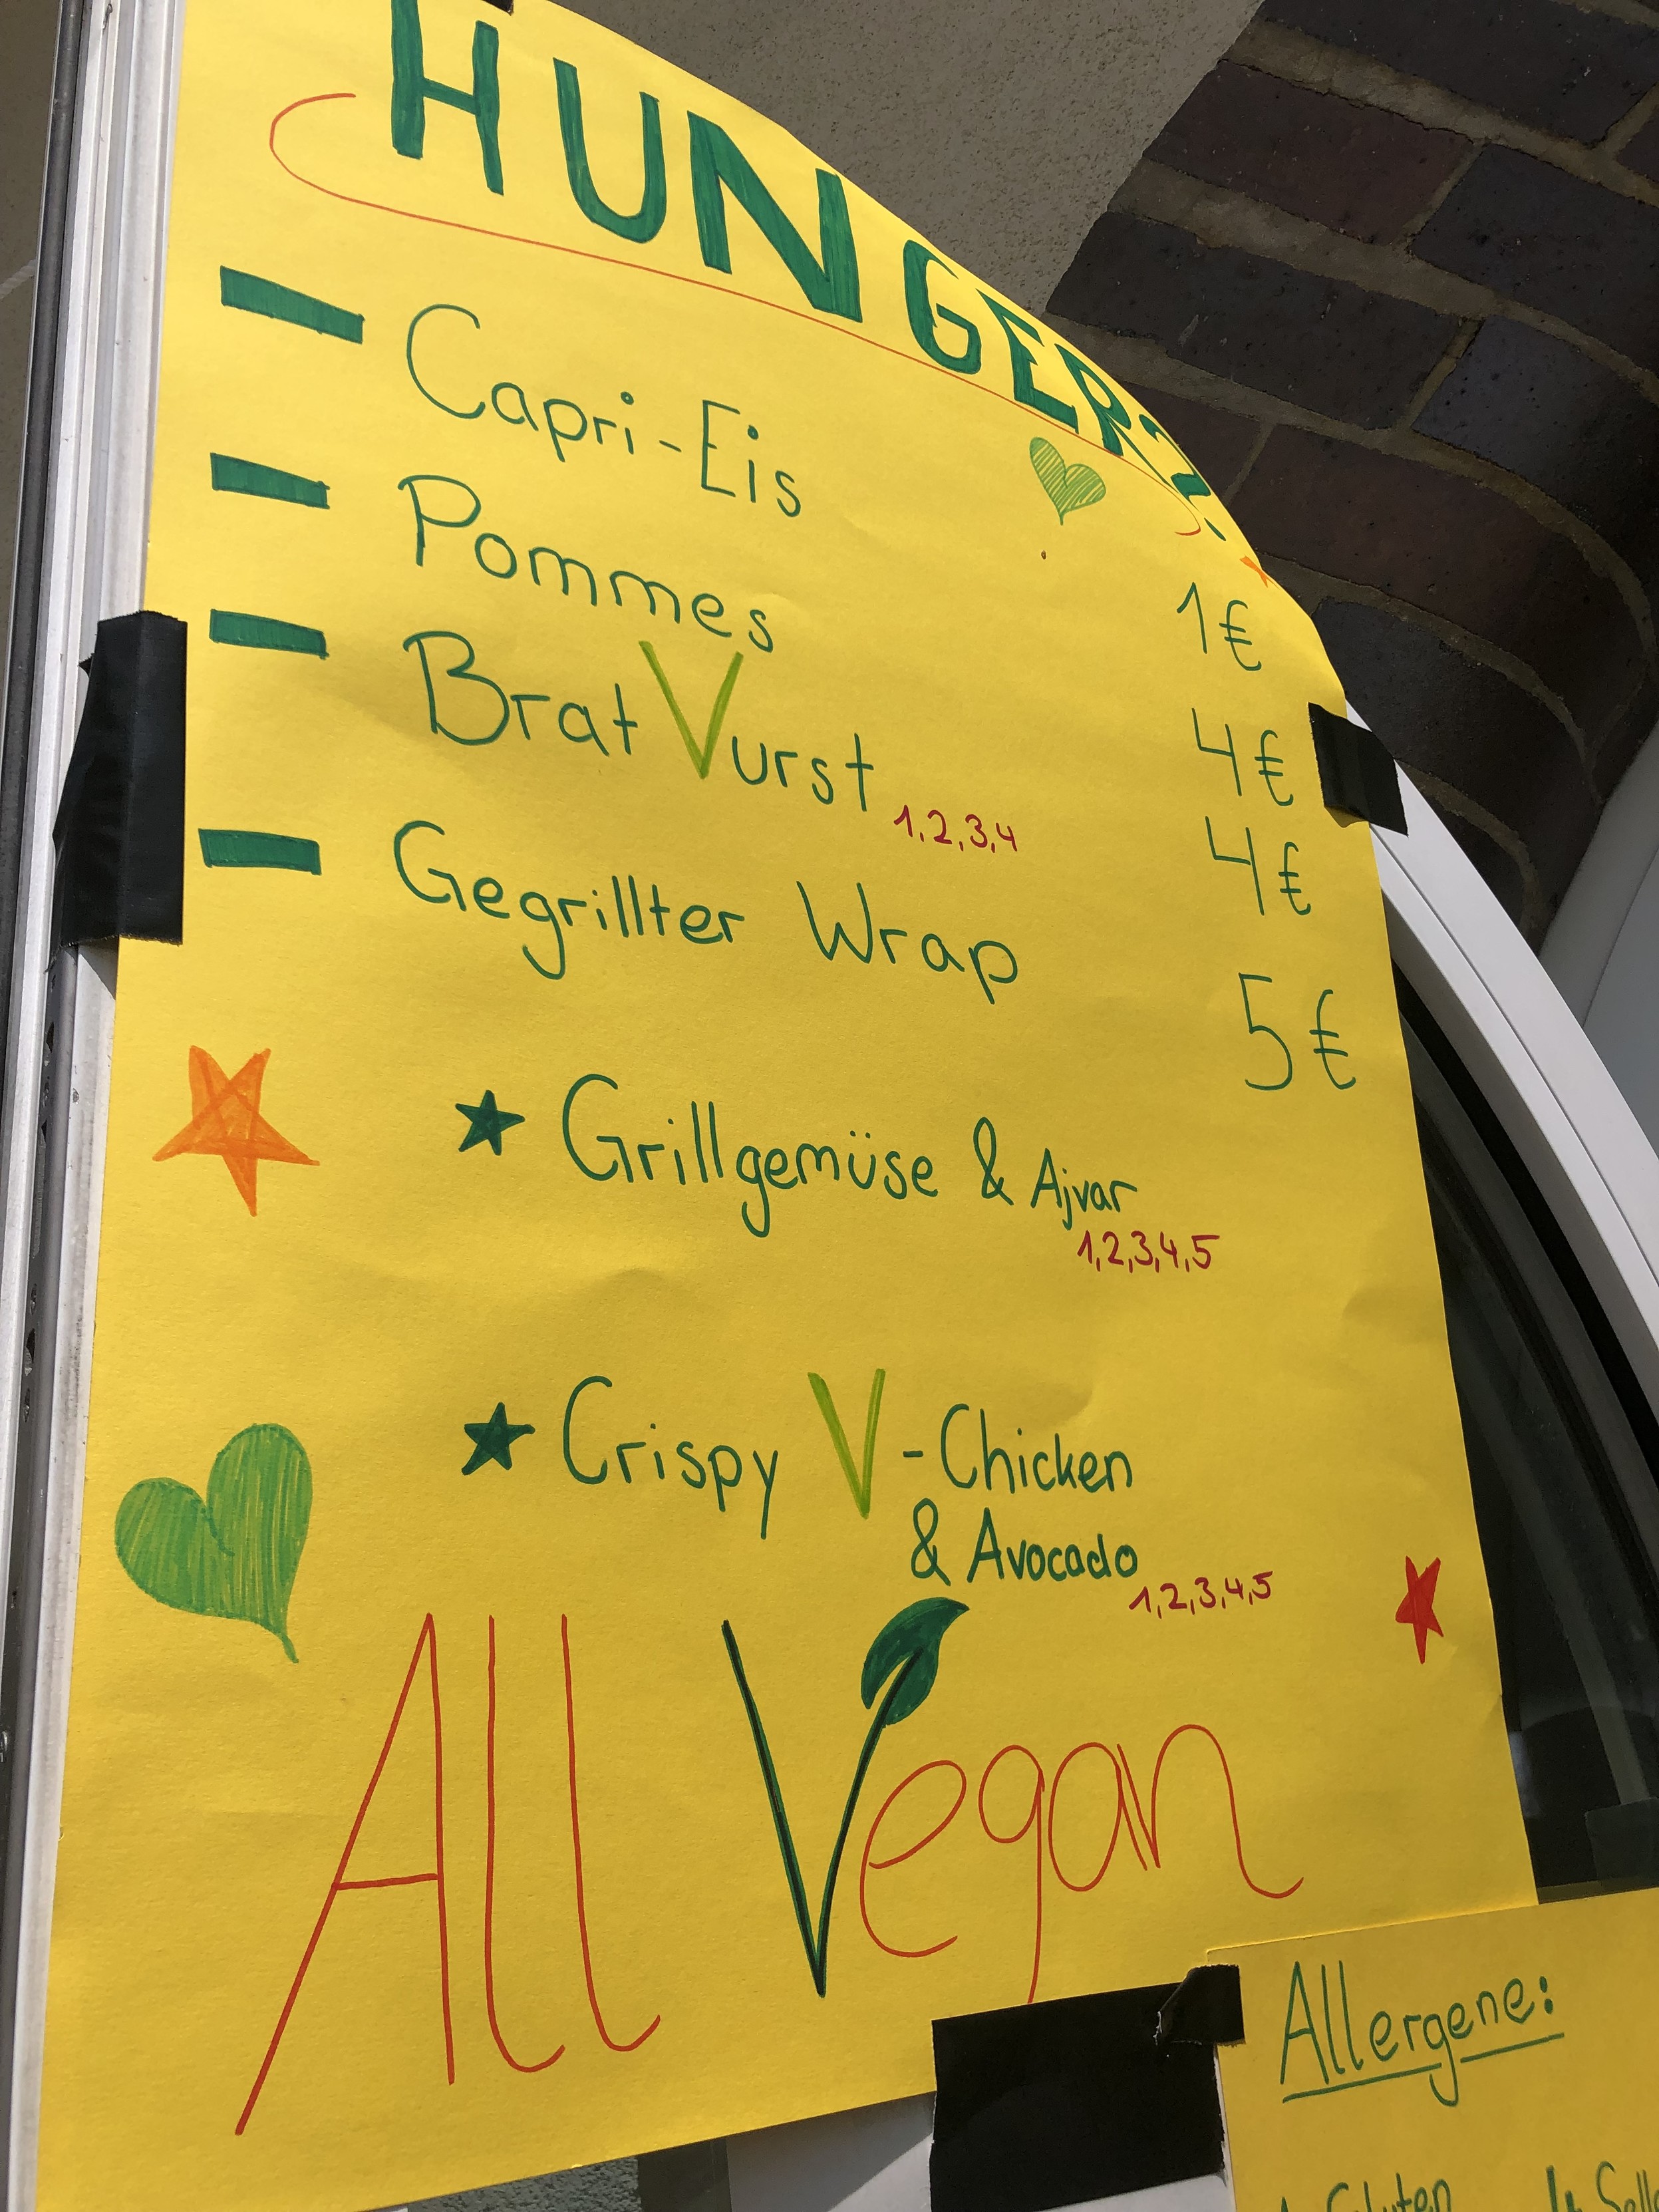 HUNGER?
- Capri-Eis 1€
- Pommes 4€
- BratVurst 1,2,3,4 4€
- Gegrillter Wrap 5€
Grillgemüse & Ajvar
1,2,3,4,5
Crispy V-Chicken
& Avocado
1,2,3,4,5
All Vegan
Allergene:
Gluten